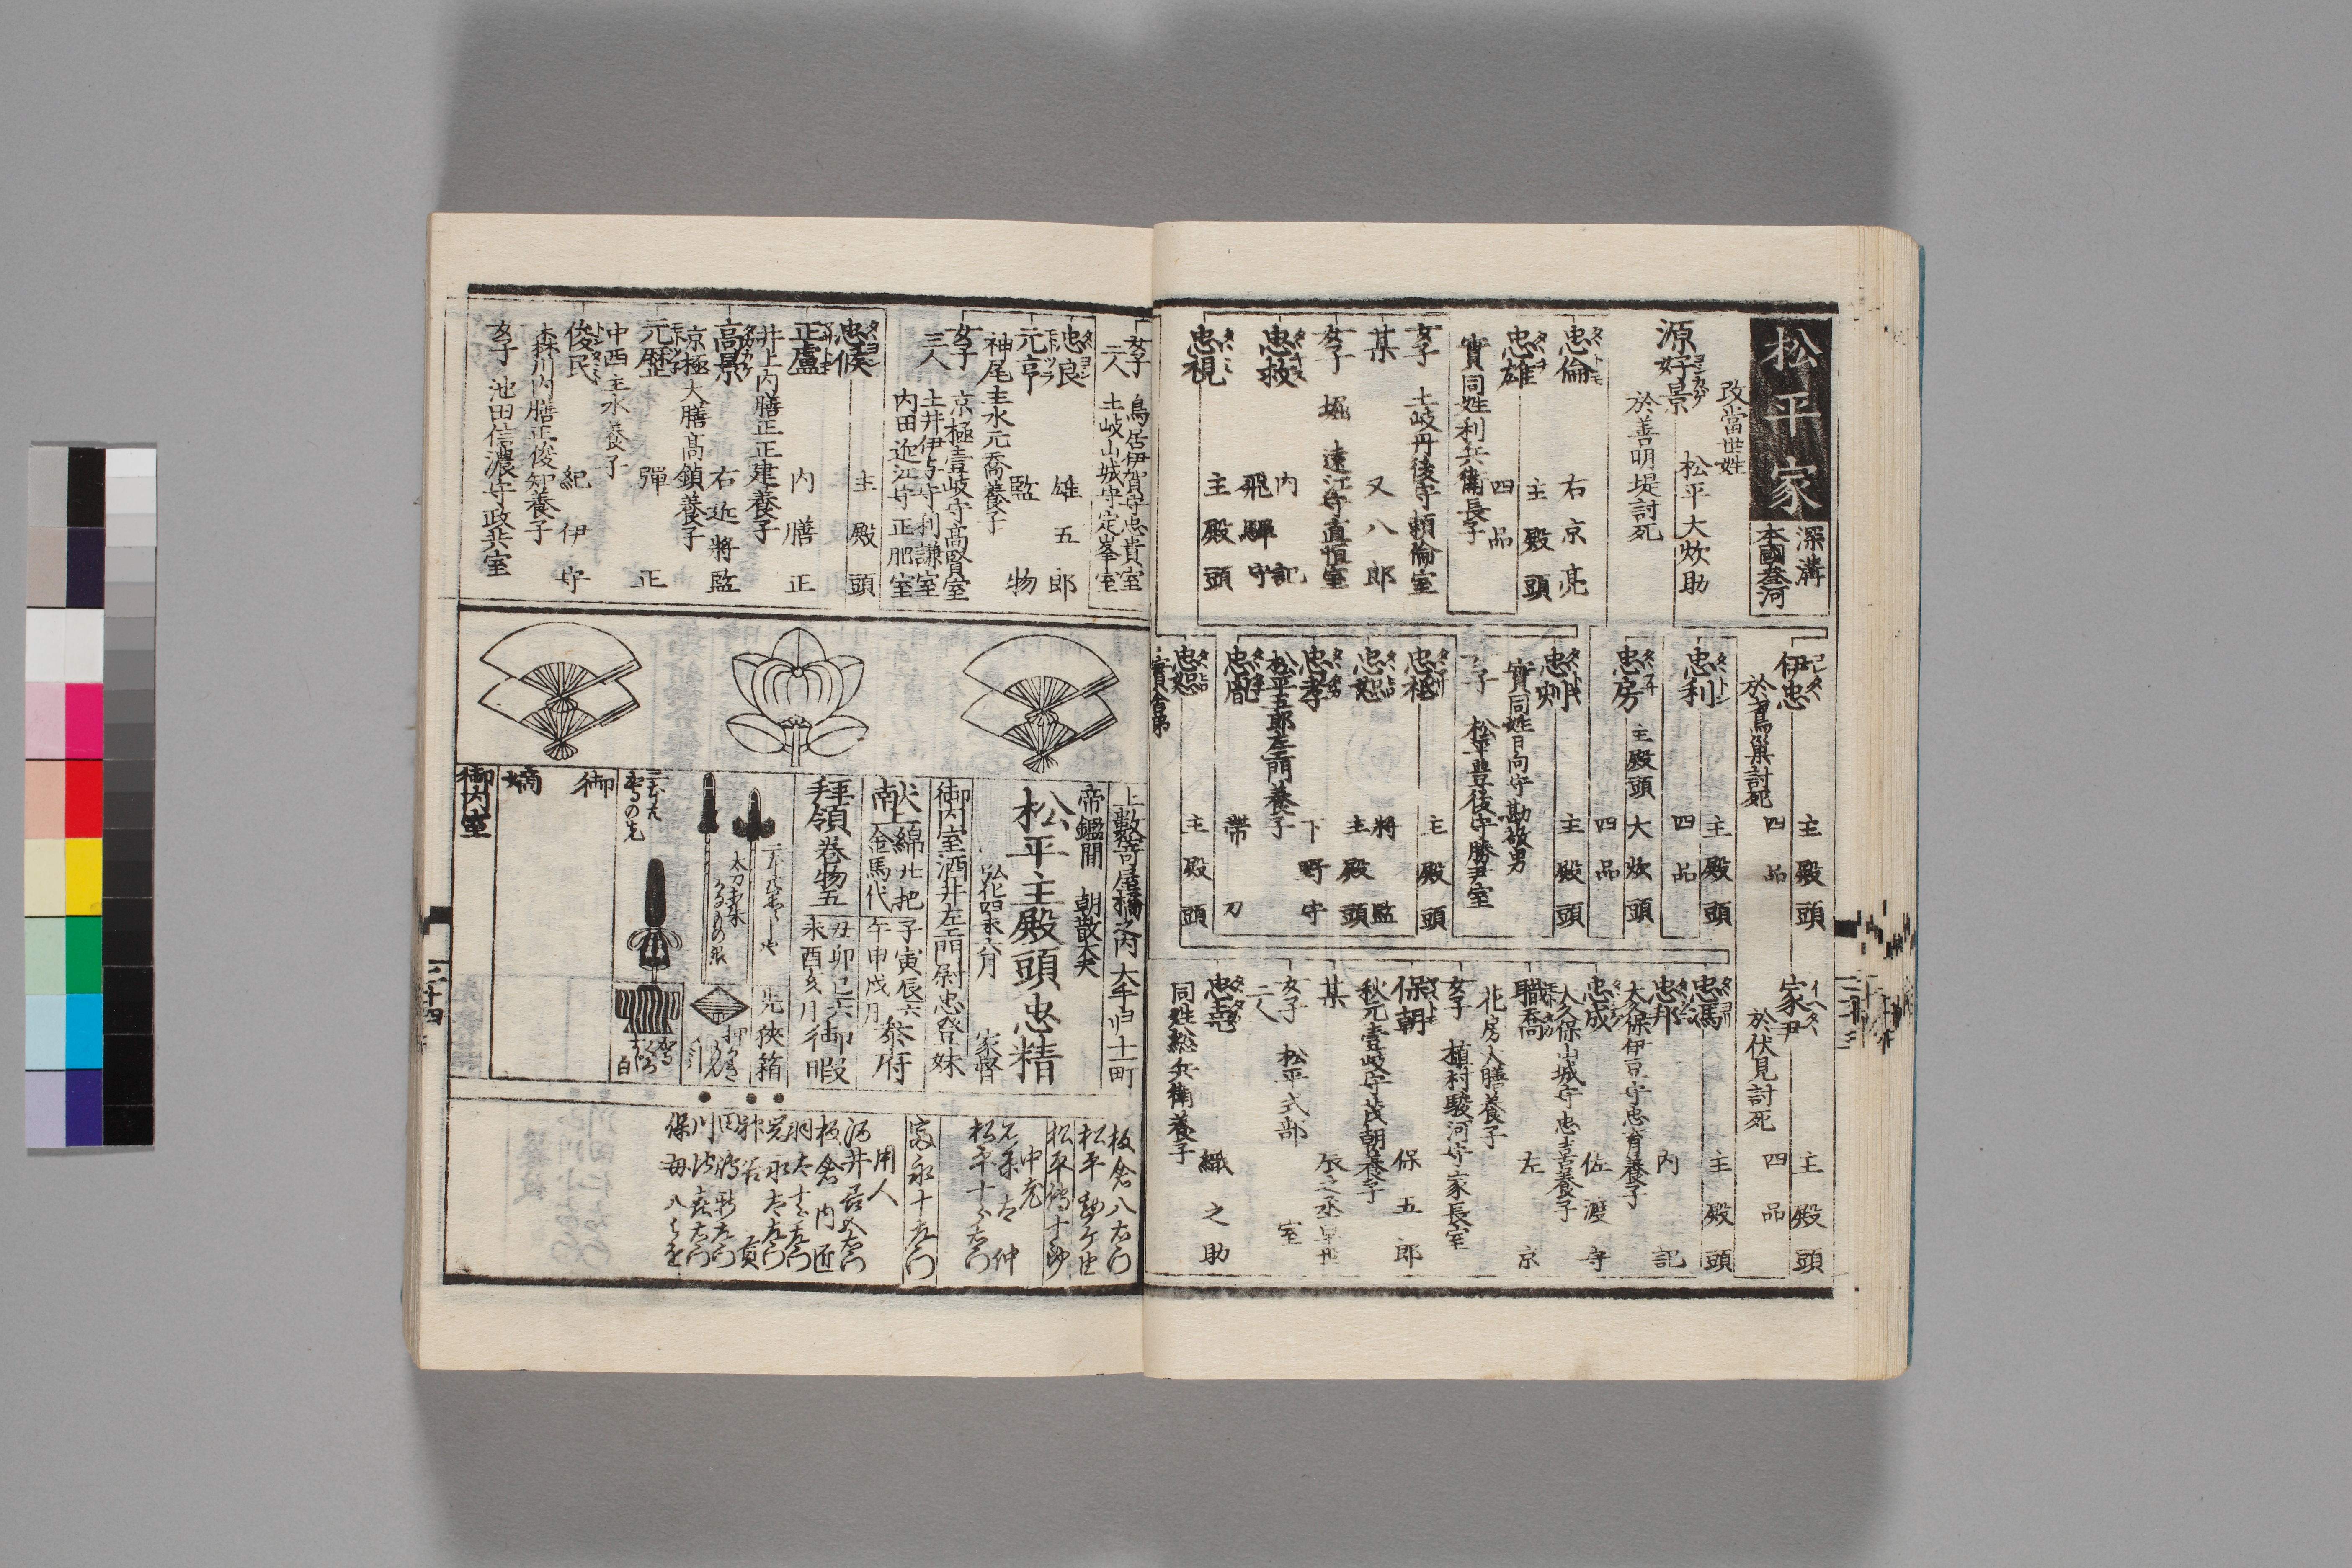 松平家
深溝
本國參河
改當世姓
源好景
ヨシカゲ
松平大炊助
於善明堤討死
忠倫
右京亮
忠雄
主殿頭
四品
實同姓利兵衛長子
女子
土岐丹後守頼倫室
某
又八郎
女子
堀遠江守直恒室
忠救
内記
飛騨守
忠視
主殿頭
伊忠
主殿頭
於鳶巣討死
四品
忠利
主殿頭
四品
忠房
主殿頭
大炊頭
四品
忠刻
主殿頭
實同姓日向守勘敬男
子
松平豊後守勝尹室
忠祗
主殿頭
忠恕
將監
主殿頭
忠孝
下野守
松平五郎左衛門養子
忠
帶刀
忠恕
主殿頭
實舎弟
家忠
主殿頭
於伏見討死
四品
忠馮
主殿頭
忠邦
内記
大久保伊豆守忠育養子
忠成
佐渡守
大久保山城守忠喜養子
職喬
左京
花房大膳養子
女子
植村駿河守家長室
保朝
保五郎
秋元壹岐守茂朝養子
某
辰之丞早世
女子
二人
松平式部室
忠憙
織之助
同姓総兵衛養子
女子
二人
鳥居伊賀守忠貴室
土岐山城守定峯室
忠良
雄五郎
元亨
監物
神尾主水元喬養子
女子
三人
京極壹岐守高賢室
土井伊与守利謙室
内田近江守正肥室
忠候
主殿頭
正盧
内膳正
井上内膳正正建養子
高景
右近將監
京極大膳高鎮養子
元歴
彈正
中西主水養子
俊民
紀伊守
森川内膳正俊知養子
女子
池田信濃守政共室
上數寄屋橋之内
大手ヨリ十一町
帝鑑間
朝散大夫
松平主殿頭忠精
弘化四未六月
家督
御内室酒井左衛門尉忠發妹
献上
綿廿把
金馬代
子寅辰
午申戌
六月
參府
拜領
巻物五
丑卯巳
未酉亥
六月
御暇
先挾箱
太刀打朱
押
白
御嫡
御内室
板倉八右衛門
松平勘ケ由
中老
松平十郎右衛門
富永十左衛門
用人
板倉内匠
二十四